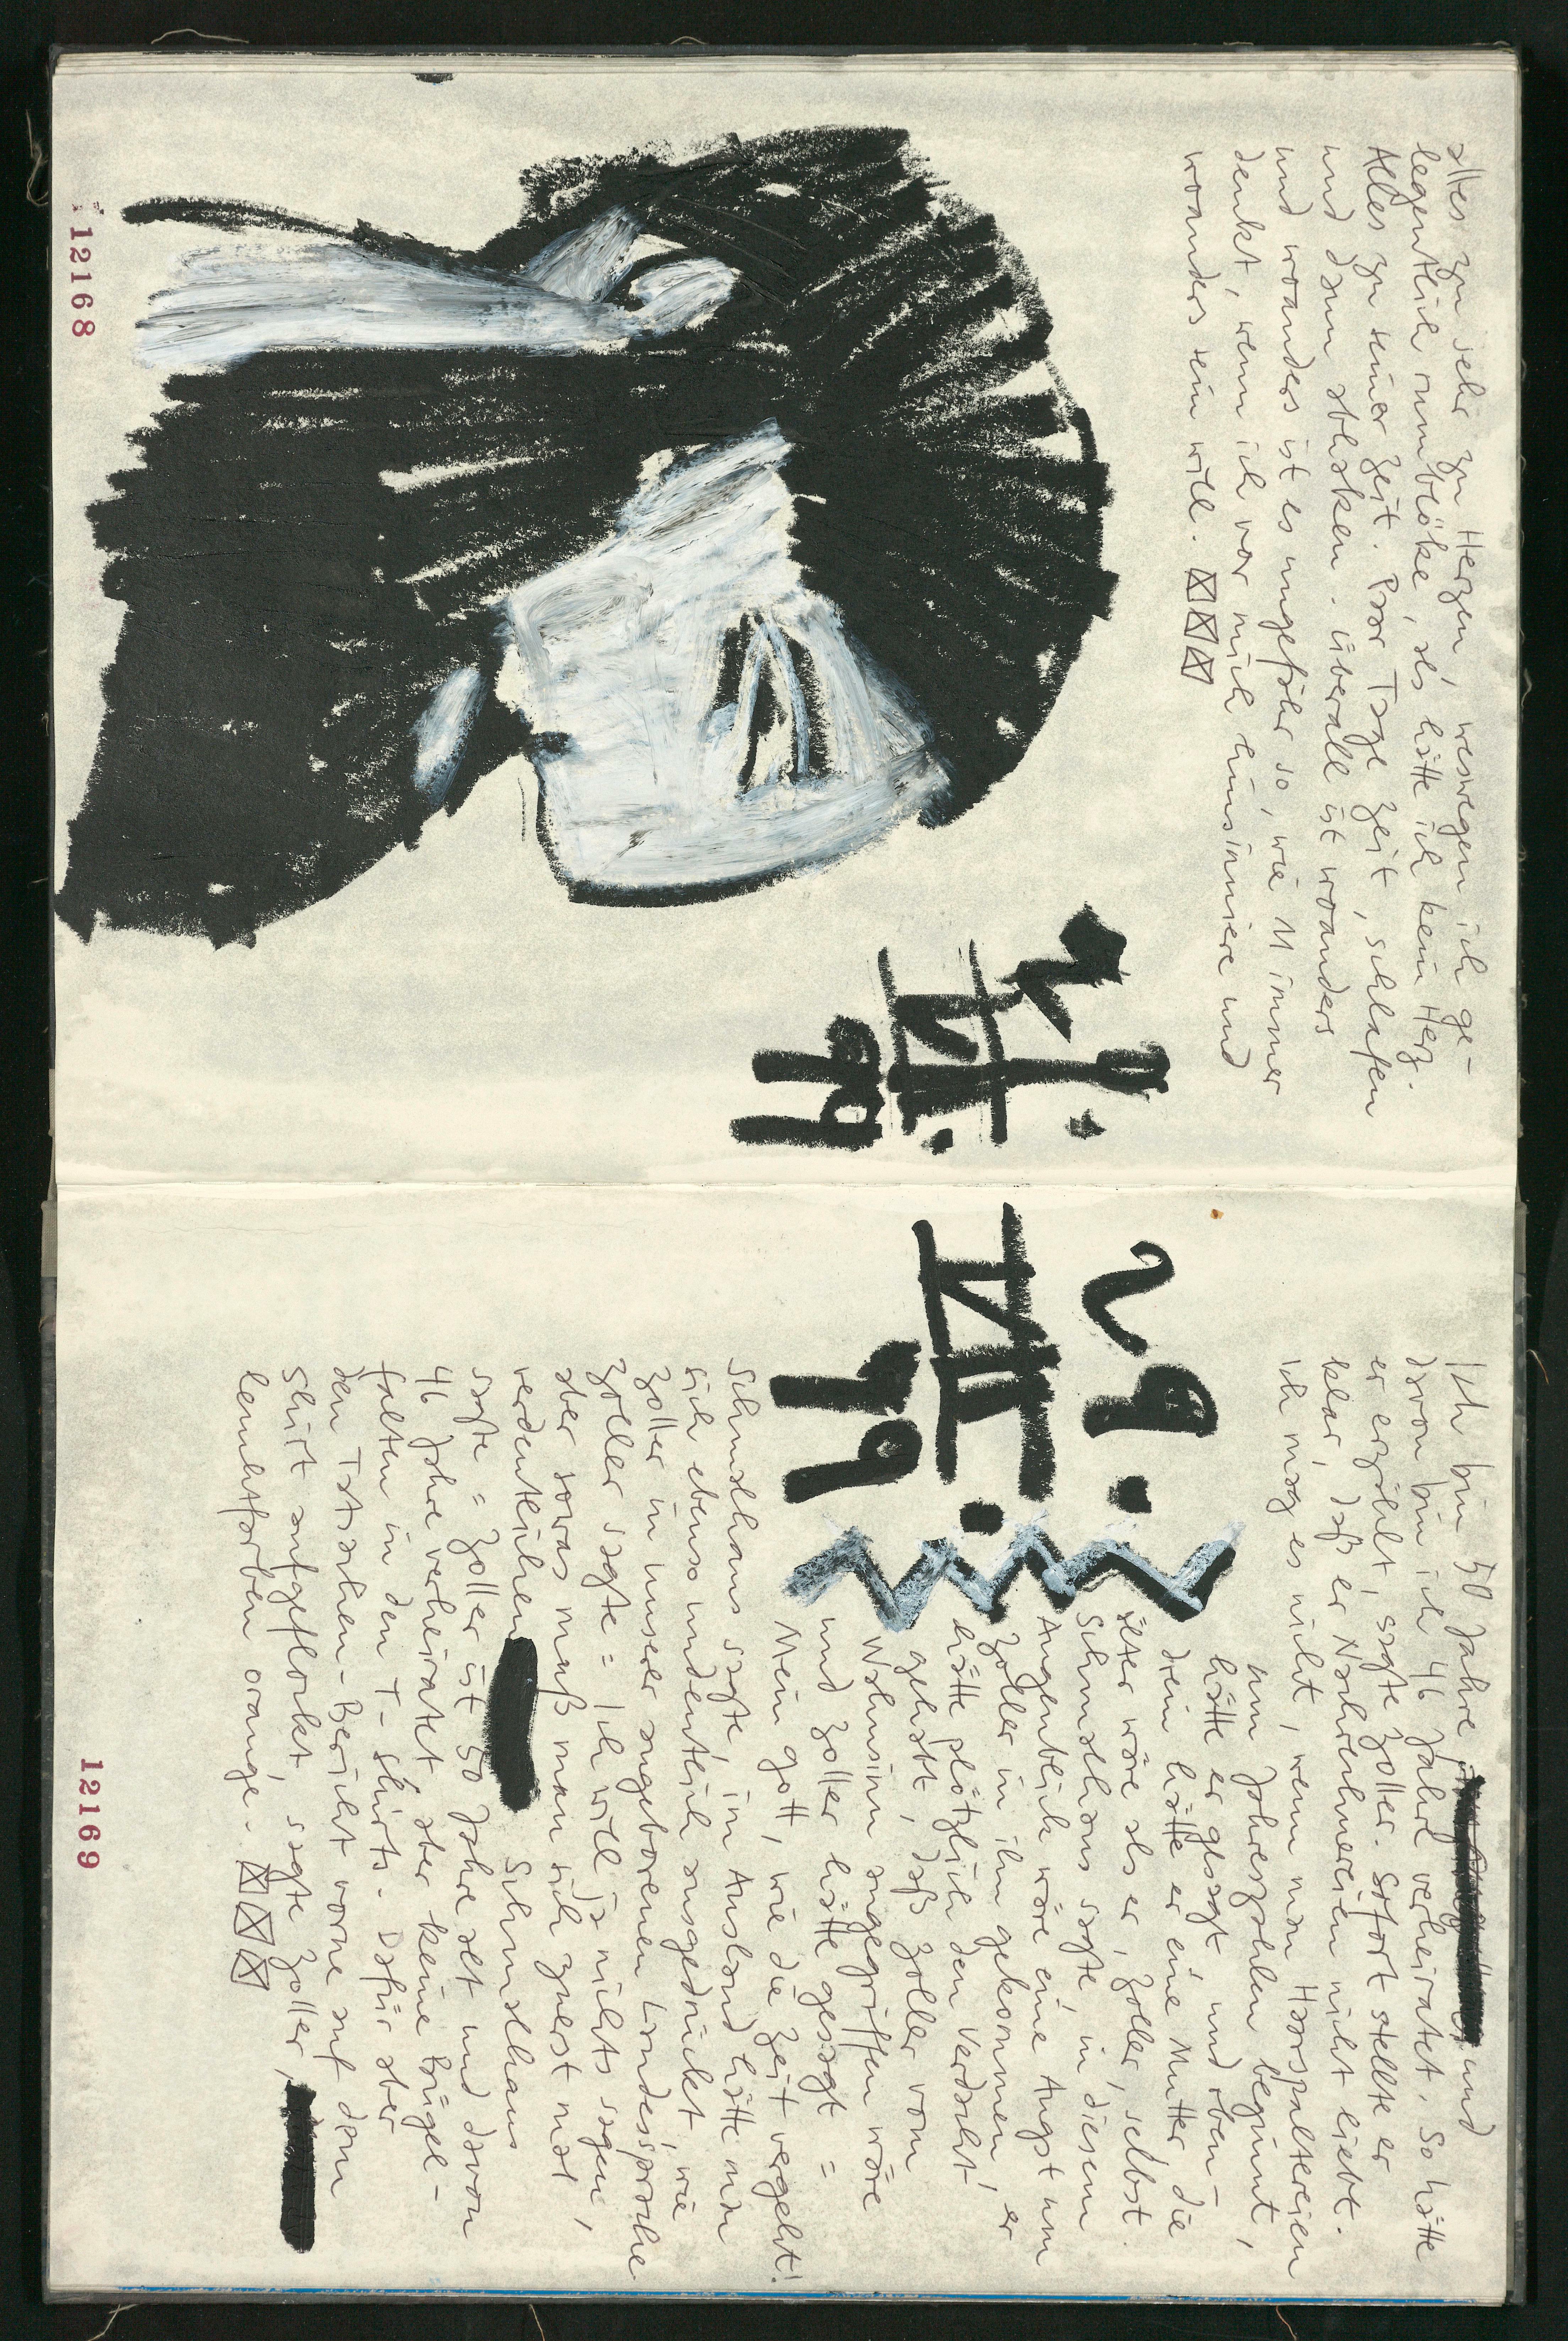 alles zu sehr zu Herzen, weswegen ich ge-
legentlich rumblöke, als hätte ich kein Herz.
Alles zu seiner Zeit. Paar Tage Zeit, schlafen
und dann abhaken. Überall ist woanders
und woanders ist es ungefähr so, wie M immer
denkt, wenn ich vor mich hinsinniere und
woanders sein will.
99
12168
Ich bin 50 Jahre und
davon bin ich 46 Jahre verheiratet. So hätte
er erzählt, sagte Zoller. Sofort stellte er
klar, daß er Nachrechnereien nicht liebt.
Ich mag es nicht, wenn man Haarspaltereien
um Jahreszahlen beginnt,
hätte er gesagt und eben-
drein hätte er eine Mutter die
älter wäre als er, Zoller, selbst.
Schmalhans sagte, in diesem
Augenblick wäre eine Angst um
Zoller in ihn gekommen, er
hätte plötzlich den Verdacht
gehabt, daß Zoller vom
Wahnsinn angegriffen wäre
und Zoller hätte gesagt =
Mein Gott, wie die Zeit vergeht!
29.
99
Schmalhans sagte, im Ausland hätte man
sich ebenso undeutlich ausgedrückt, wie
Zoller in unserer angeborenen Landessprache
Zoller sagte = Ich will ja nichts sagen,
aber sowas muß man sich zuerst mal
verdeutlichen Schmalhans
sagte = Zoller ist 50 Jahre alt und davon
46 Jahre verheiratet aber keine Bügel-
falten in den T-Shirts. Dafür aber
den Tatsachen-Bericht vorne auf dem
Shirt aufgeflockt, sagte Zoller,
leuchtfarben orange.
12169